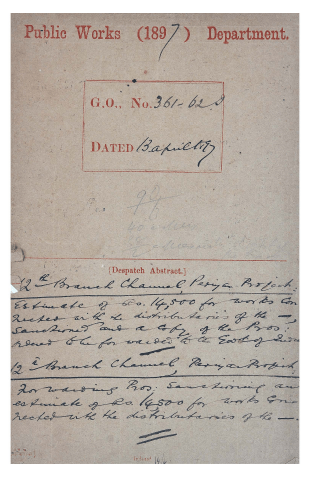 Public Works (1897) Department.
G.O., No. 361-62 I
DATED 13 april 1897
(Despatch Abstract.)
12th Branch Channel Periyar Project,
Estimate of Rs. 14,500 for works Con
nected with the distributaries of the —
Sanctioned and a Copy of the Pros:
to be forwarded to the Govt of
12th Branch Channel, Periyar Project,
Forwarding Pros: Sanctioning an
estimate of Rs. 14500 for works Con
nected with the distributaries of the —.